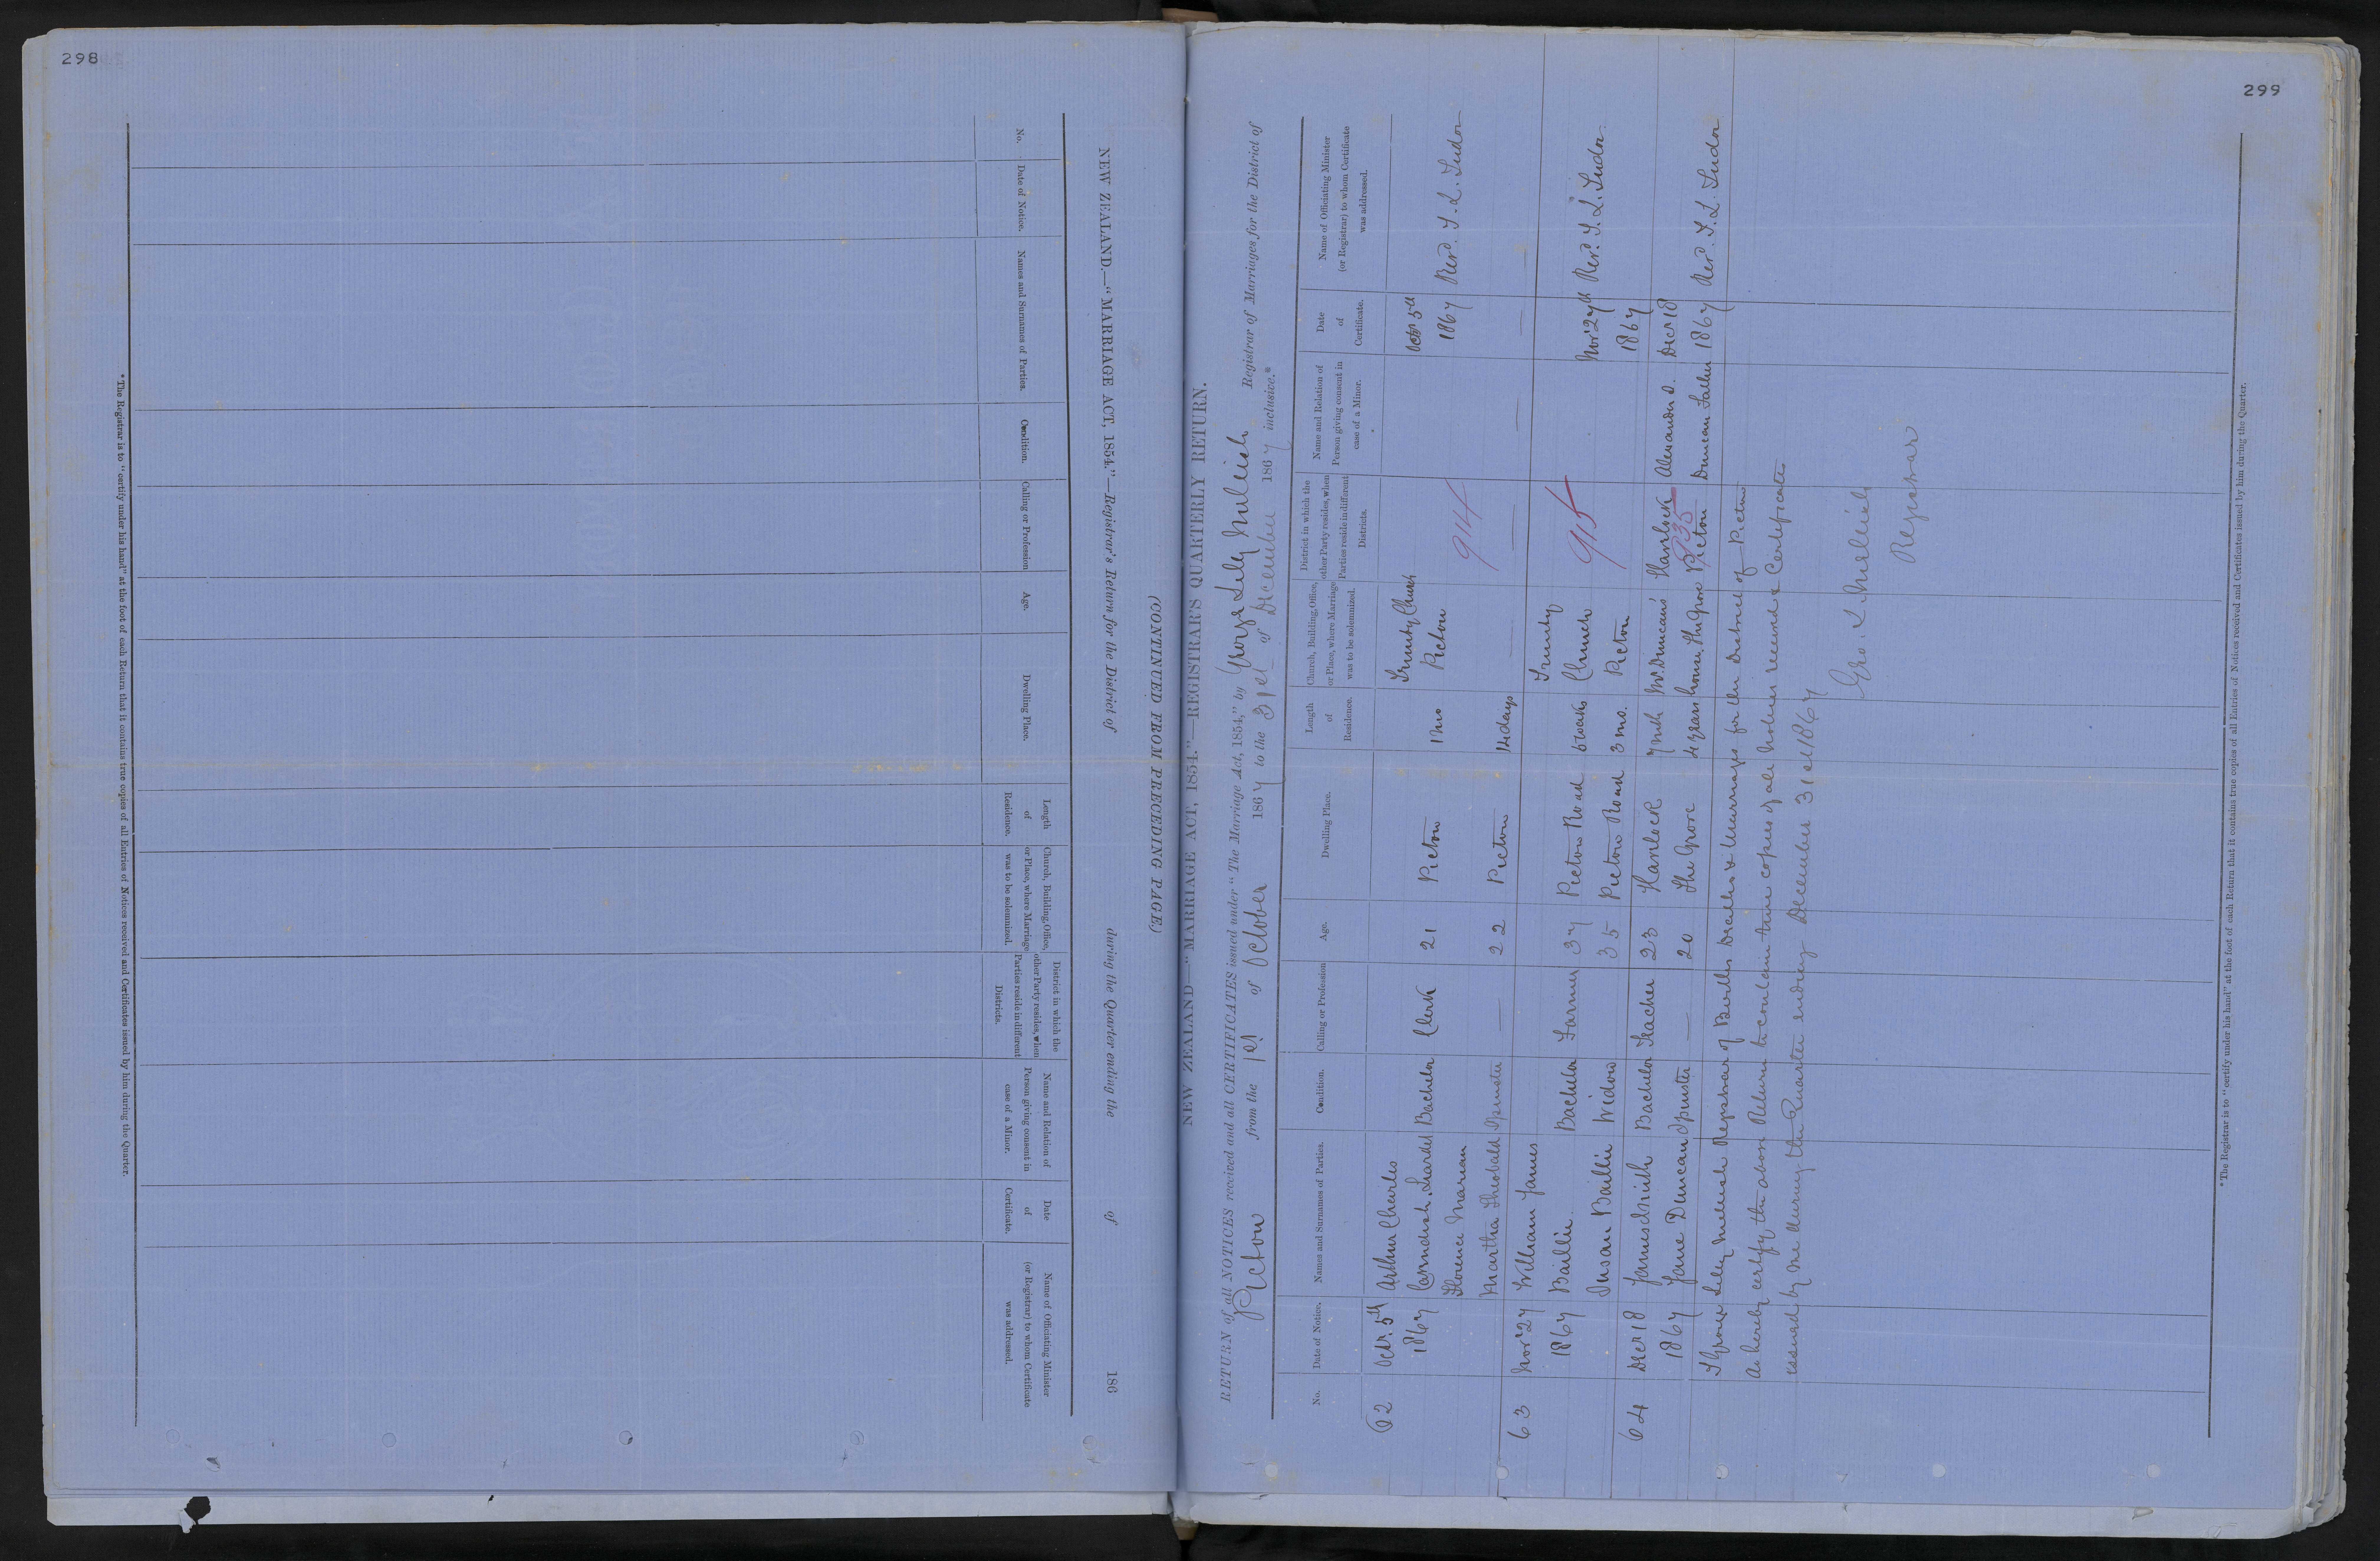 298
NEW ZEALAND.—"MARRIAGE ACT, 1854."—Registrar's Return for the District of during the Quarter ending the of 186
(CONTINUED FROM PRECEDING PAGE.)
No.
Date of Notice.
Names and Surnames of Parties.
Condition.
Calling or Profession
Age.
Dwelling Place.
Length
of
Residence.
Church, Building, Office,
or Place, where Marriage
was to be solemnized.
District in which the
other Party resides, when
Parties reside in different
Districts.
Name and Relation of
Person giving consent in
case of a Minor.
Date
of
Certificate.
Name of Officiating Minister
(or Registrar) to whom Certificate
was addressed.
*The Registrar is to "certify under his hand" at the foot of each Return that it contains true copies of all Entries of Notices received and Certificates issued by him during the Quarter.
299
NEW ZEALAND—"MARRIAGE ACT, 1854."—REGISTRAR'S QUARTERLY RETURN.
RETURN of all NOTICES received and all CERTIFICATES issued under "The Marriage Act, 1854," by George Lily Mellish Registrar of Marriages for the District of
Picton from the 1st of October 1867 to the 31st of December 1867 inclusive.*
No.
Date of Notice.
Names and Surnames of Parties.
Condition.
Calling or Profession
Age.
Dwelling Place.
Length
of
Residence.
Church, Building, Office,
or Place, where Marriage
was to be solemnized.
District in which the
other Party resides, when
Parties reside in different
Districts.
Name and Relation of
Person giving consent in
case of a Minor.
Date
of
Certificate.
Name of Officiating Minister
(or Registrar) to whom Certificate
was addressed.
62 Octr. 5th Arthur Charles Trinity Church Octr 5th
1867 Cavendish Bachelor Clerk 21 Picton 1 mo Picton 1867 Revd. T. L. Tudor
Florence Marian 914
Martha Theobald Spinster — 22 Picton 14 days — — — — —
63 Novr 27 William James Trinity
1867 Baillie Bachelor Farmer 37 Picton Road 6 weeks Church 915 Novr 27th Revd. T. L. Tudor
Susan Baillie Widow 35 Picton Road 3 mo. Picton 1867
64 Decr 18 James Smith Bachelor Teacher 23 Havelock 7 mth Mr. Duncans Havelock Alexander D. Decr 18
1867 Jane Duncan Spinster — 20 The Grove 4 years house, The Grove Picton 935 Duncan Father 1867 Revd. T. L. Tudor
I George Lily Mellish Registrar of Births Deaths & Marriages for the District of Picton
do hereby certify the above Return to contain true copies of all notices received & Certificates
issued by me during the Quarter ending December 31st 1867
Geo. L Mellish
Registrar
*The Registrar is to "certify under his hand" at the foot of each Return that it contains true copies of all Entries of Notices received and Certificates issued by him during the Quarter.